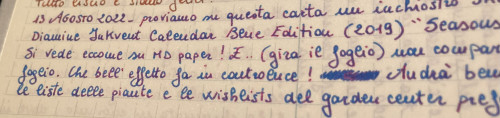 tutto liscio e
13 Agosto 2022 - proviamo su questa carta un inchiostro
Diamine Inkvent Calendar Blue Edition (2019) "Seasons
Si vede eccome su MD paper! E.. (gira il foglio) non compar
foglio. Che bell'effetto fa in controluce! Andrà ben
le liste delle piante e le wishlists del garden center pref